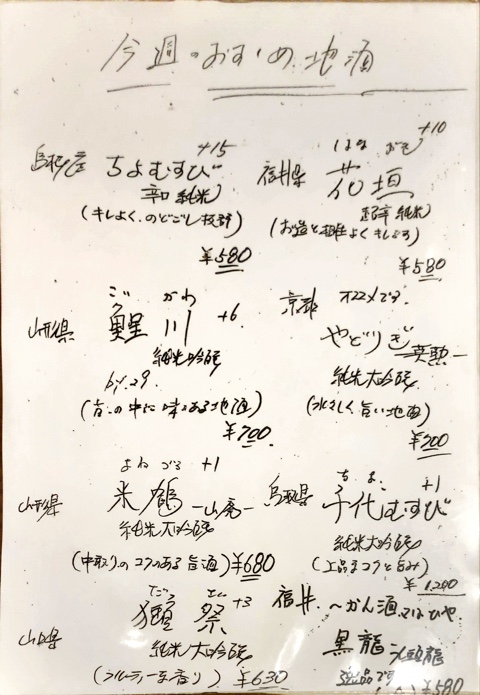 今週のおすすめ地酒
鳥取県 ちよむすび +15
辛口 純米
(キレよく、のどごし抜群)
¥580
福井県 はな がき +10
花垣
超辛 純米
(お造と相性よくキレます)
¥580
山形県 ごっ かわ
鯉川 +6
純米吟醸
by.29
(旨の中に味ある地酒)
¥700
京都 オススメです。
やどりぎ 英勲
純米大吟醸
(水々しく旨い地酒)
¥700
山形県 よね づる +1
米鶴
純米大吟醸
(中取りのコクのある旨酒) ¥680
鳥取県 ちよ
千代むすび +1
純米大吟醸
(上品なコクと旨み)
¥1,200
山口県 だっ さい
獺祭 +3
純米大吟醸
(フルーティーな香り) ¥630
福井 〜かん酒 ひや
黒龍 九頭龍
逸品です ¥580